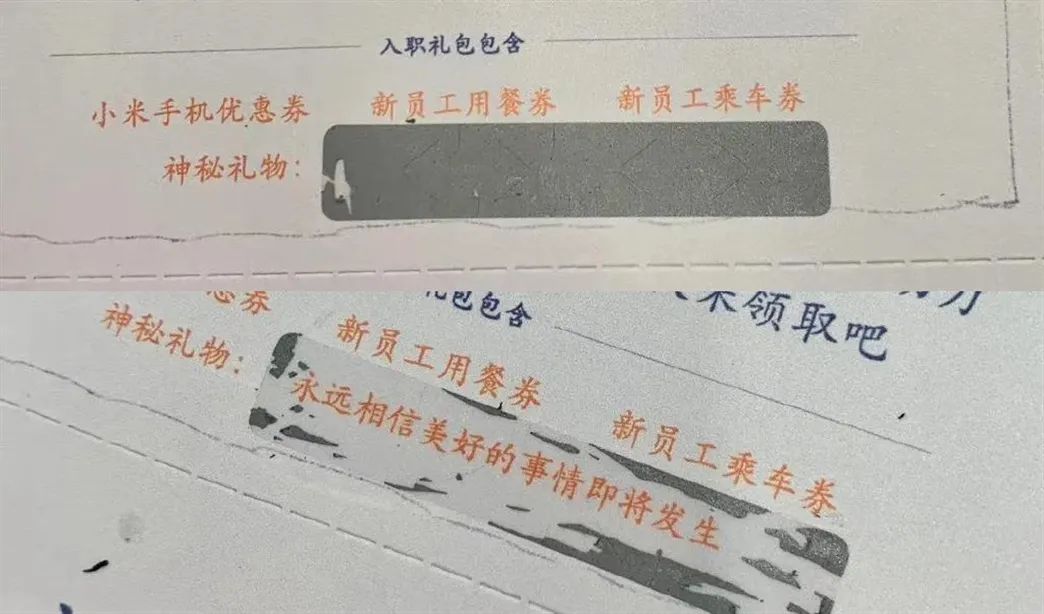 入职礼包包含
小米手机优惠券 新员工用餐券 新员工乘车券
神秘礼物:
礼包包含
来领取吧
券
新员工用餐券 新员工乘车券
神秘礼物:
永远相信美好的事情即将发生